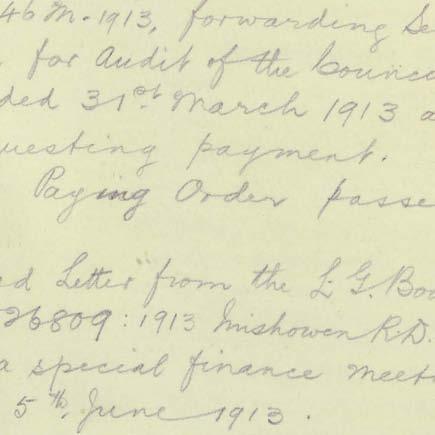 46 M. 1913, forwarding Se
for Audit of the Counc
ded 31st March 1913 a
uesting payment.
Paying Order passe
ed Letter from the L. G. Boa
26809 : 1913 Inishowen R.D.
a special finance meet
5th June 1913.